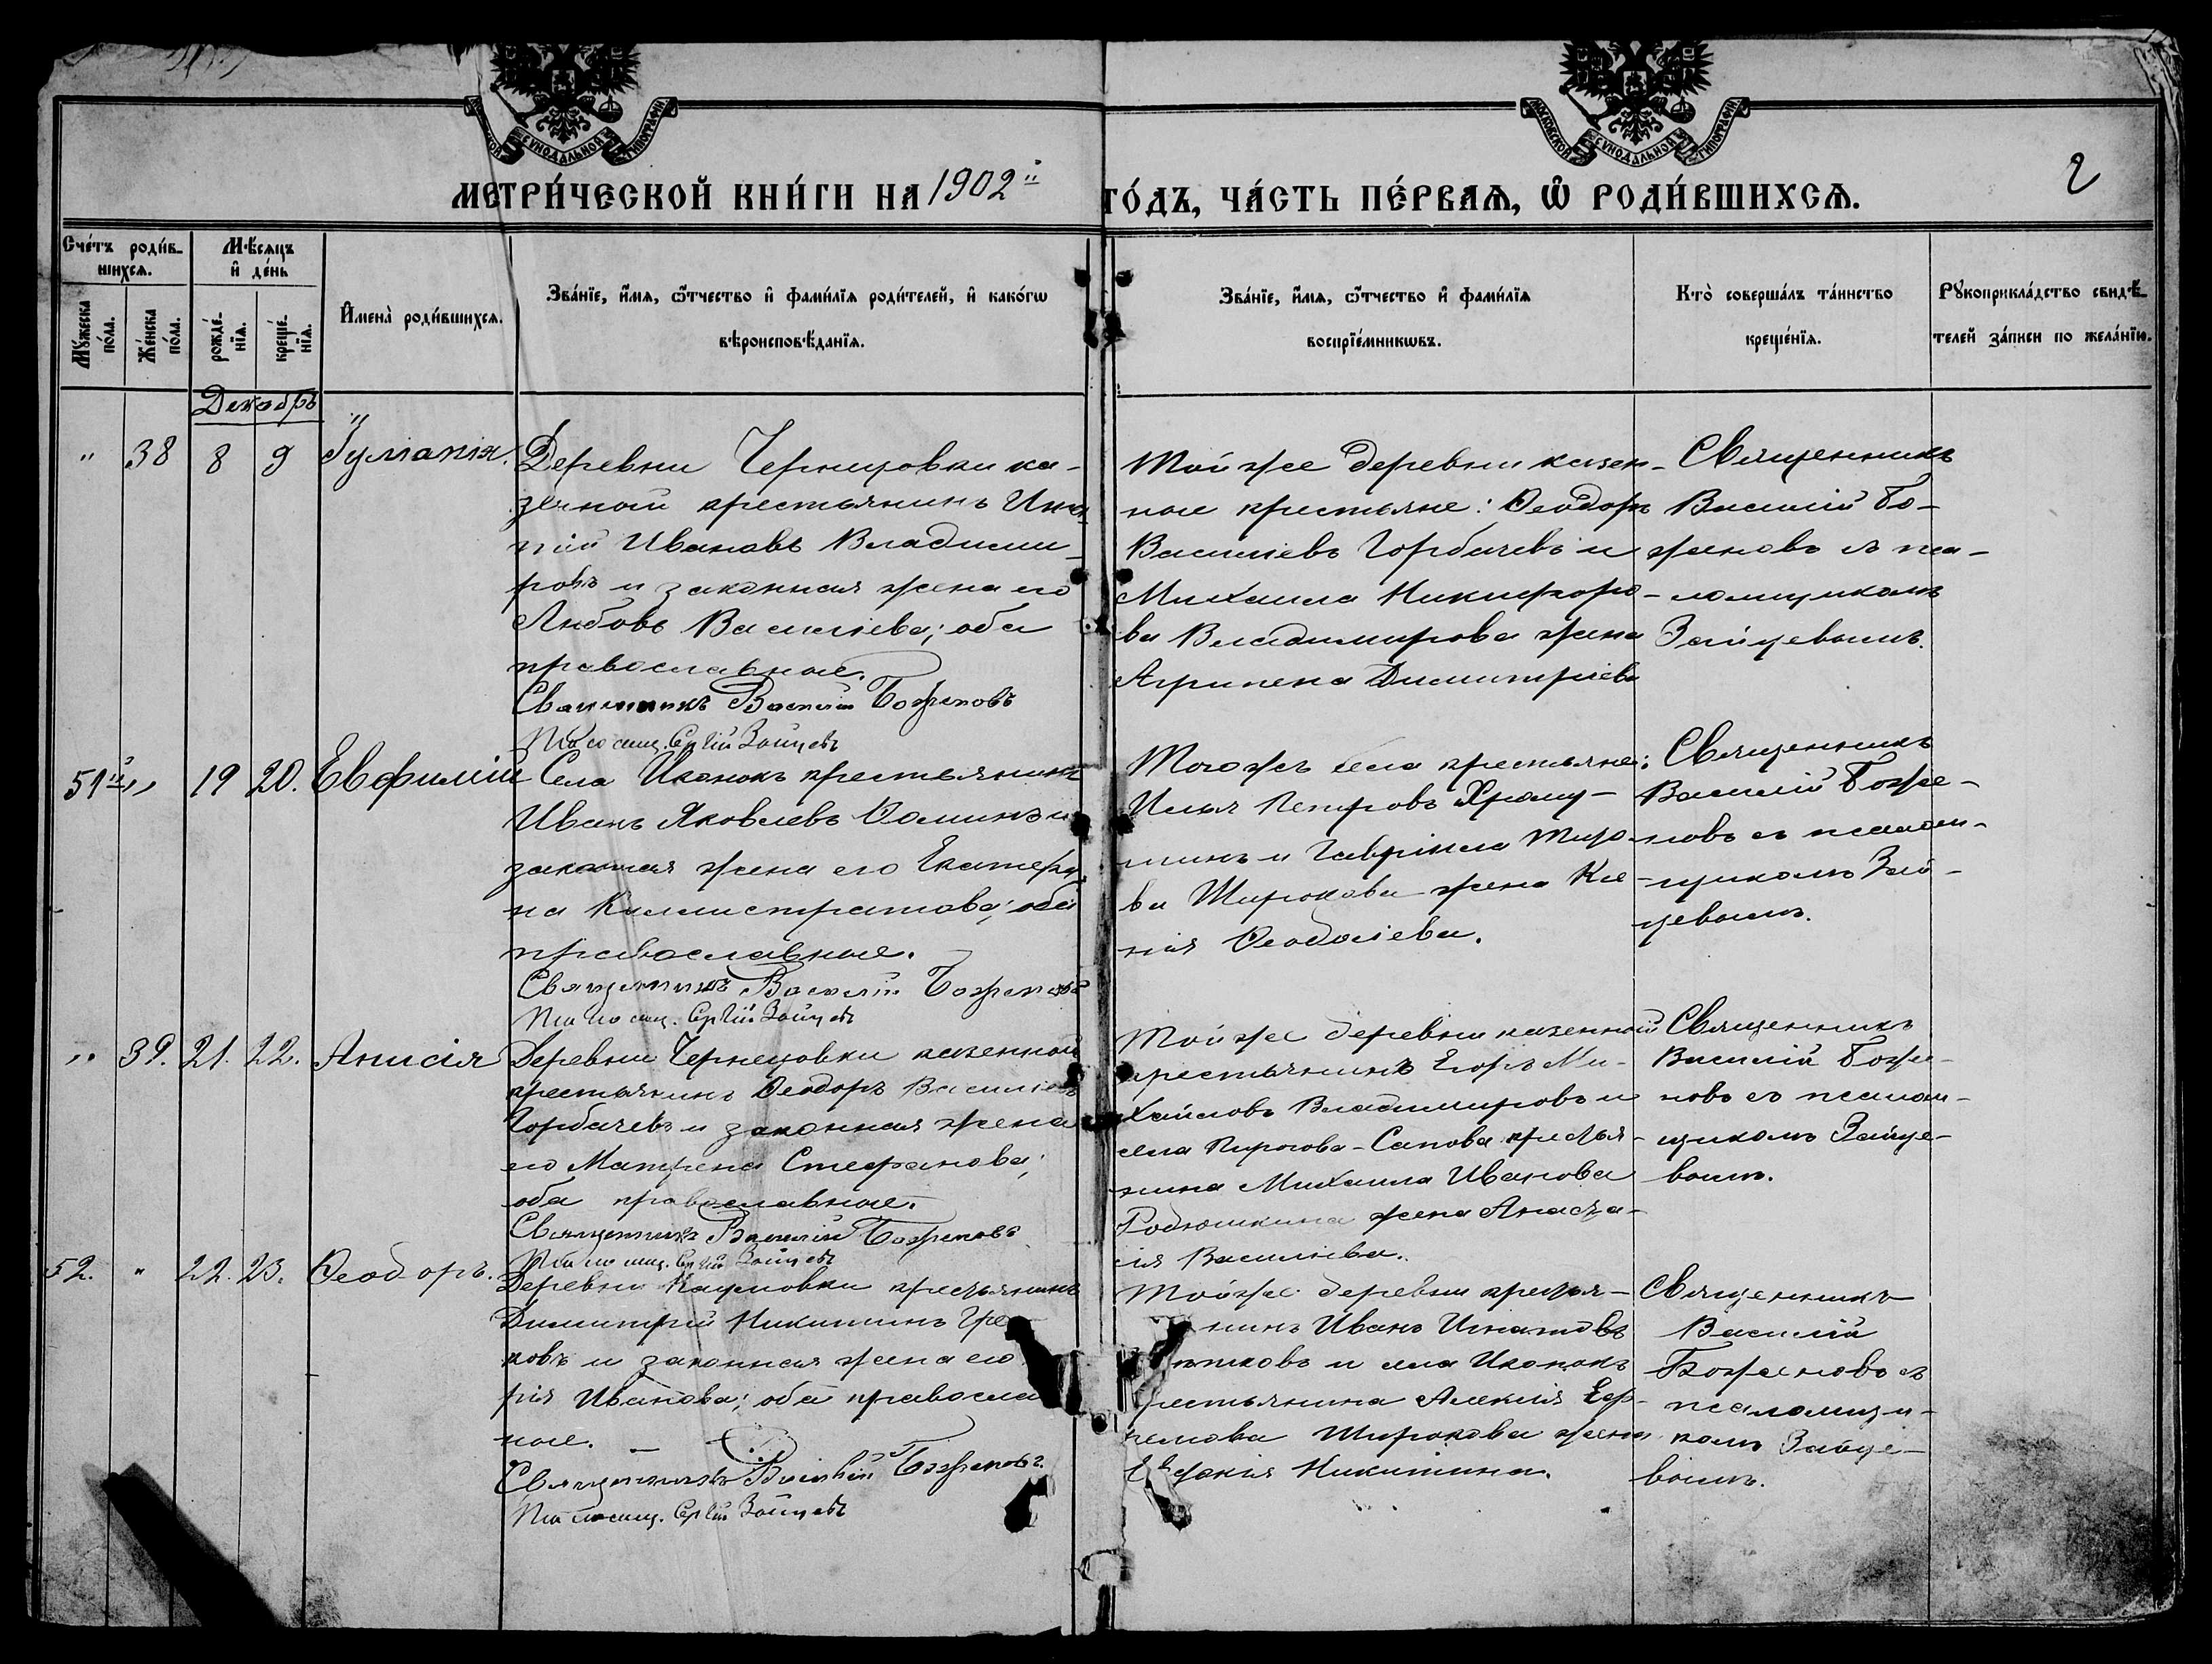 МОСКОВСКОЙ СУНОДАЛЬНОЙ ТИПОГРАФІИ
2
МЕТРИ́ЧЕСКОЙ КНИ́ГИ НА 1902й ГО́ДЪ, ЧА́СТЬ ПЕ́РВАѦ, Ѡ РОДИ́ВШИХСѦ.
Сче́тъ роди́в-
шихсѧ.
Мꙋ́жеска по́ла.
Же́нска по́ла.
Мѣ́сѧцъ
и де́нь
рожде́-
нїѧ.
креще́-
нїѧ.
Имена̀ роди́вшихсѧ.
Зва́нїе, и́мѧ, ѻ́тчество и фами́лїѧ роди́телей, и како́гѡ
вѣроисповѣ́данїѧ.
Зва́нїе, и́мѧ, ѻ́тчество и фами́лїѧ
воспрїе́мникѡвъ.
Кто̀ соверша́лъ та́инство
креще́нїѧ.
Рꙋкоприкла́дство свидѣ́-
телей за́писи по жела́нїю.
Декабрь
" 38 8 9 Іуліанія.
Деревни Чернцовки ка-
зенной крестьянинъ
Ивановъ Владими-
ровъ и законная жена его
Любовь Василіева; оба
православные.
Священникъ Василій Боженовъ
Псаломщ. Сергій Зайцевъ
Той же деревни казен-
ные крестьяне: Ѳеодоръ
Василіевъ Горбачевъ и
Михаила Никифоро-
ва Владимирова жена
Агрипена Димитріева
Священникъ
Василій Бо-
женовъ съ пса-
ломщикомъ
Зайцевымъ.
51й " 19 20. Евфимій
Села Иконокъ крестьянинъ
Иванъ Яковлевъ Ѳоминъ и
законная жена его Екатери-
на Каллистратова; оба
православные.
Священникъ Василій Боженовъ
Псаломщ. Сергій Зайцевъ
Того же села крестьяне:
Илья Петровъ
и Гавріила
ва Широкова жена Ксе-
нія Ѳеодосіева.
Священникъ
Василій Боже-
новъ съ псалом-
щикомъ Зай-
цевымъ.
" 39. 21. 22. Анисія
Деревни Чернецовки казенной
крестьянинъ Ѳеодоръ Василіевъ
Горбачевъ и законная жена
его Матрена Стефанова;
оба православные.
Священникъ Василій Боженовъ
Псаломщ. Сергій Зайцевъ
Той же деревни казенной
крестьянинъ Егоръ Ми-
хайловъ Владимировъ и
села Пирогова-Сапова кресть-
нина Михаила Иванова
Родюшкина жена Анаста-
сія Василіева.
Священникъ
Василій Боже-
новъ съ псалом-
щикомъ Зайце-
вымъ.
52. " 22. 23. Ѳеодоръ.
Деревни Наумовки крестьянинъ
Димитрій Никитинъ Гре-
ковъ и законная жена его
рія Иванова; оба правосла
ные.
Священникъ Василій Боженовъ.
Псаломщ. Сергій Зайцевъ
Той же деревни кресть-
нинъ Иванъ Игнатовъ
и села Иконокъ
крестьянина Алексія Еф-
ремова Широкова жена
Евфокія Никитина.
Священникъ
Василій
Боженовъ съ
псаломщи-
комъ Зайце-
вымъ.